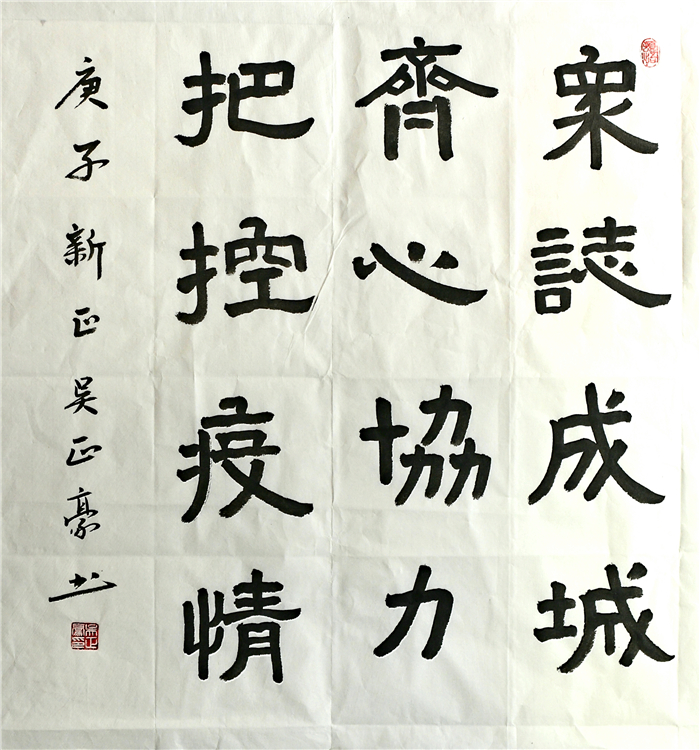 眾誌成城
齊心協力
把控疫情
庚子新正吴正豪书